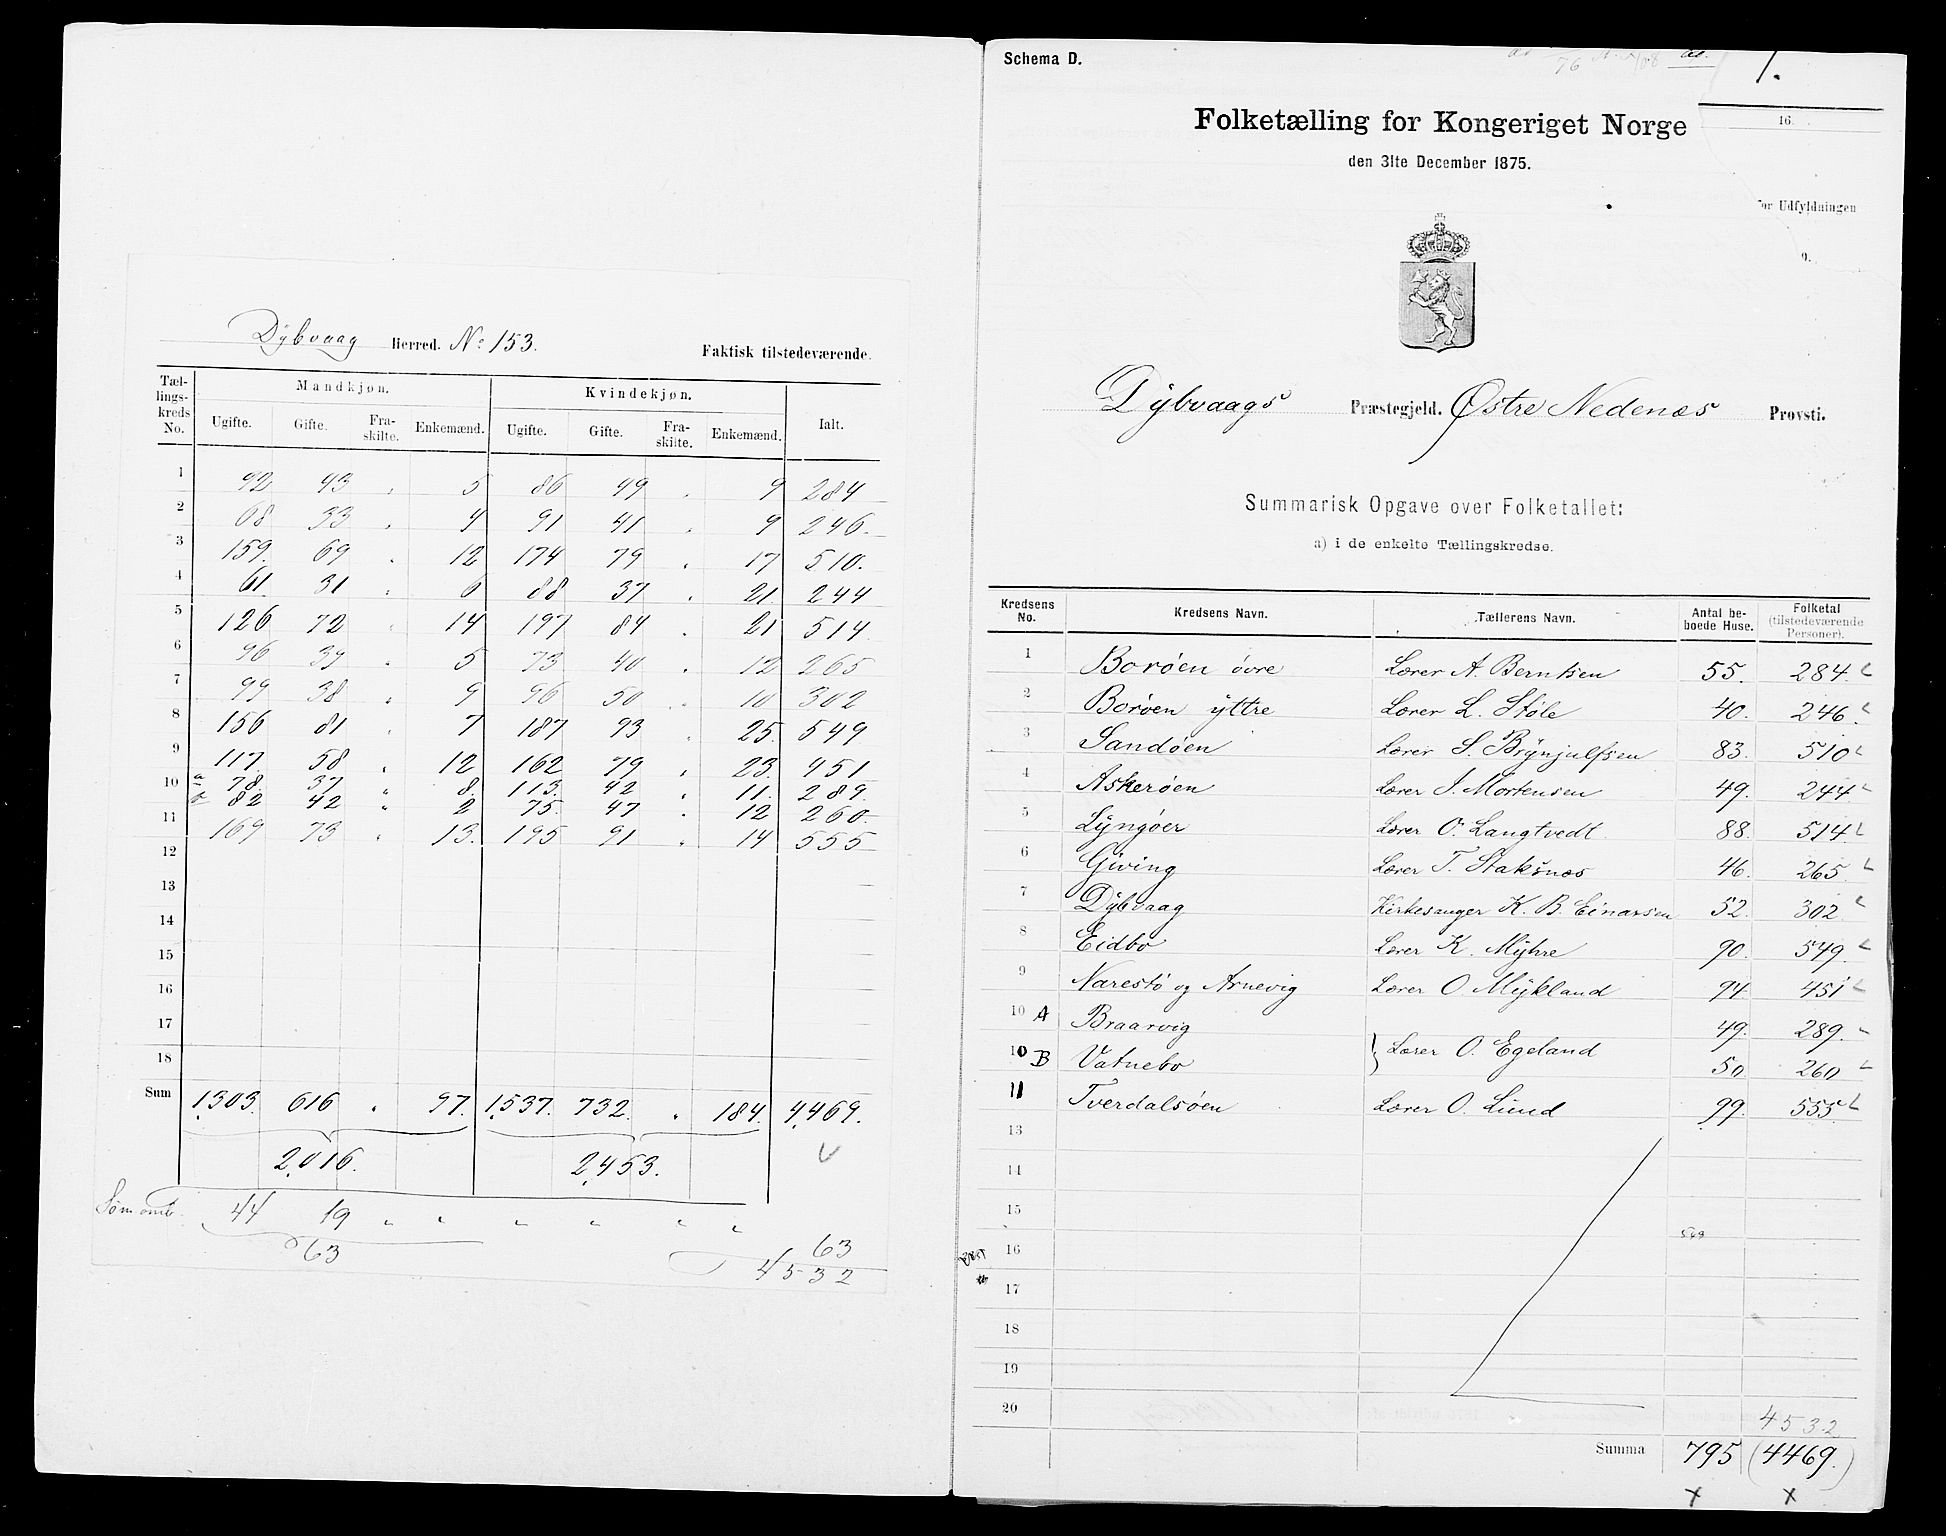 Dybvaag Herred. No 153.
Faktisk tilstedeværende.
Tællingskreds No. Mandkjøn. Kvindekjøn. Ialt.
Ugifte. Gifte. Fraskilte. Enkemænd. Ugifte. Gifte. Fraskilte. Enkemænd.
1 92 43 " 5 86 49 " 9 284
2 68 33 " 4 91 41 " 9 246.
3 159. 69 " 12 174 79 " 17 510.
4 61 31 " 6 88 37 " 21. 244
5 126 72 " 14 197 84 " 21 514
6 96 39 " 5 73 40 " 12 265
7 99 38 " 9 96 50 " 10 302
8 156 81 " 7 187 93 " 25. 549
9 117 58 " 12 162 79 " 23. 451
10 a 78. 37 " 8. 113. 42 " 11. 289.
b 82 42 " 2 75. 47 " 12 260.
11 169 73 " 13. 195 91 " 14 555
12
13
14
15
16
17
18
Sum 1,303. 616 " 97. 1,537. 732. " 184. 4,469.
2,016. 2,453.
Søm omb. 44 19 " " " " " "
63 63
4532
Schema D.
1.
16.
Folketælling for Kongeriget Norge
den 31te December 1875.
for Udfyldningen
9.
Dybvaags Præstegjeld. Østre Nedenæs Provsti.
Summarisk Opgave over Folketallet:
a) i de enkelte Tællingskredse.
Kredsens No. Kredsens Navn. Tællerens Navn. Antal beboede Huse. Folketal (tilstedeværende Personer).
1 Borøen övre Lærer A. Berntsen 55. 284.
2 Borøen yttre Lærer L. Støle 40. 246.
3 Sandøen Lærer S. Brynjulfsen 83. 510
4 Askerøen Lærer J. Mortensen 49. 244
5 Lyngøer Lærer O. Langtvedt 88. 514
6 Giving Lærer T. Staksnæs 46. 265
7 Dybvaag Kirkesanger K. B. Einarsen 52. 302
8 Eidbo Lærer K. Myhre 90. 549.
9 Narestö og Arnevig Lærer O Mykland 94 451
10 A Braarvig 49. 289.
10 B Vatnebo } Lærer O. Egeland 50 260
11 Tverdalsöen Lærer O. Lund 99. 555
13
14
15
16
17
18
19
20
4532
Summa 795 (4469.)
x x